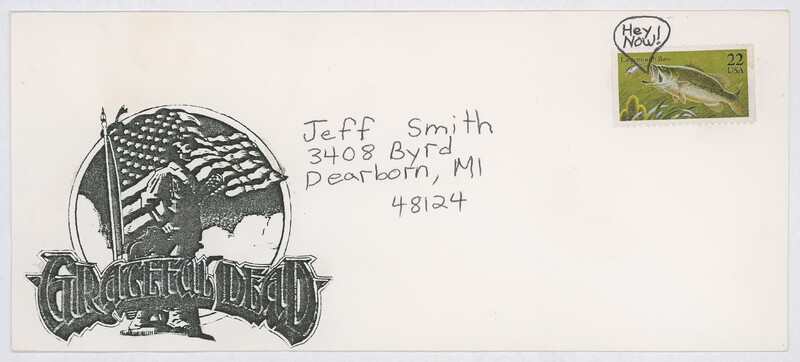 Hey
Now!
Largemouth Bass
22
USA
Jeff Smith
3408 Byrd
Dearborn, MI
48124
GRATEFUL DEAD